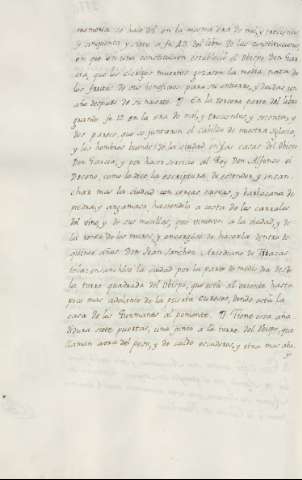 memoria se hace del en la misma era de mil, y trecientos
y cinquenta y siete a fo. 27. del libro de las constituciones
en que en una constitucion establecio el Obispo Don Gar
cia, que los clerigos muertos gozasen la media parte de
los frutos de sus beneficios para su entierro, y deudas un
año despues de su muerte. En la tercera parte del libro
quando fo. 12 en la era de mil, y trecientos, y setenta, y
dos parece, que se juntaron el Cabildo de nuestra Iglesia,
y los hombres buenos de la ciudad en las casas del Obispo
Don Garcia, y por hacer servicio al Rey Don Alfonso el
Doceno, como lo dice la escriptura, de estender, y ensan
char mas la ciudad con cercas nuevas, y barbacana de
piedra, y argamasa, haciendolo a costa de las
del vino, y de sus murallas, que vinieron a la ciudad, y de
la renta de los muros, y encargose de hacerla dentro de
quince años Don Juan Sanchez Arcediano de
ensanchose la ciudad por la parte de medio dia desde
la torre quadrada del Obispo, que está al oriente hasta
poco mas adelante de la puerta donde está la
casa de los al poniente. Tiene esta aña
didura siete puertas, una junto a la torre del Obispo, que
llaman aora del peso, y de caldo escuderos, y otra mas aba